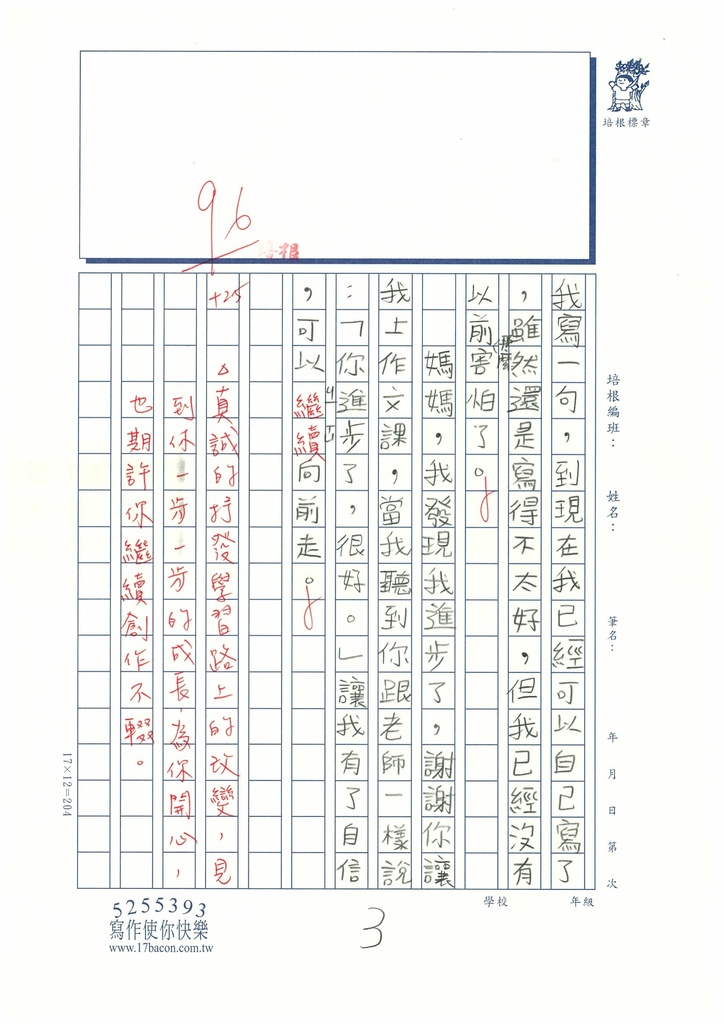 96
培根
培根標章
培根編班：
姓名：
筆名：
年 月 日 第 次
學校
年級
我寫一句，到現在我已經可以自己寫了
，雖然還是寫得不太好，但我已經沒有
以前那麼害怕了。
媽媽，我發現我進步了，謝謝你讓
我上作文課，當我聽到你跟老師一樣說
：「你進步了，很好。」讓我有了自信
，可以繼續向前走。
+25
△真誠的抒發學習路上的改變，見
到你一步一步的成長，為你開心，
也期許你繼續創作不輟。
17×12=204
5255393
寫作使你快樂
www.17bacon.com.tw
3